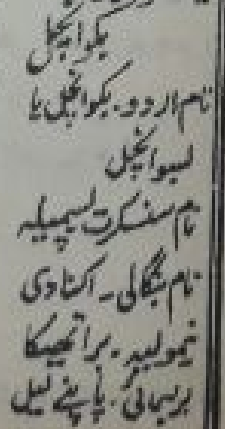 بکوانچل
نام اردو۔ بکوانچل یا
لسوانچل
نام سنسکرت لیسمپیلہ
نام بنگالی۔ اکنادی
نیمولید۔ برانھیکا
برسائی۔ پاپنے لیل